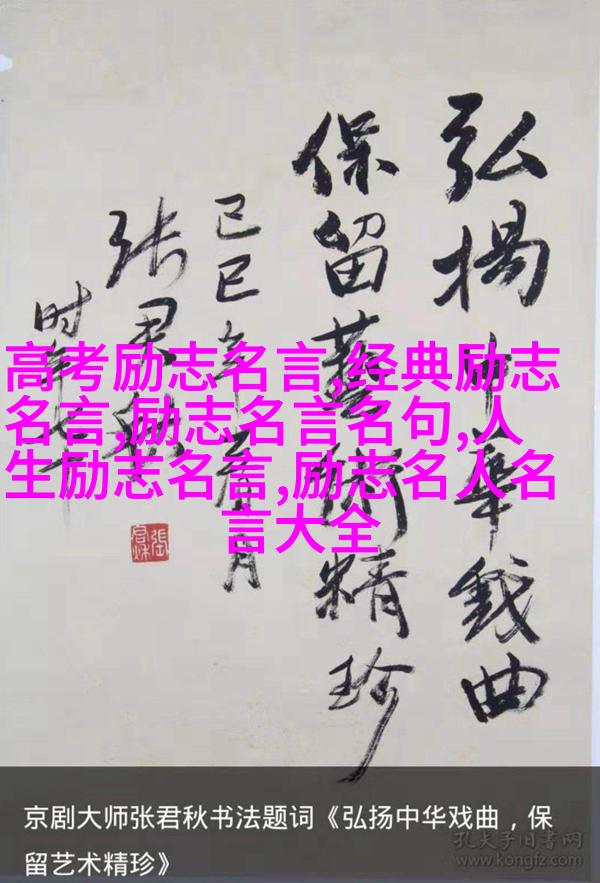 弘揚中華戲曲
保留藝術精珍
己巳年春月
张君秋
时年七十
張君秋
高考励志名言,经典励志
名言,励志名言名句,人
生励志名言,励志名人名
言大全
京剧大师张君秋书法题词《弘扬中华戏曲，保
留艺术精珍》
孔夫子旧书网
www.kongfz.com